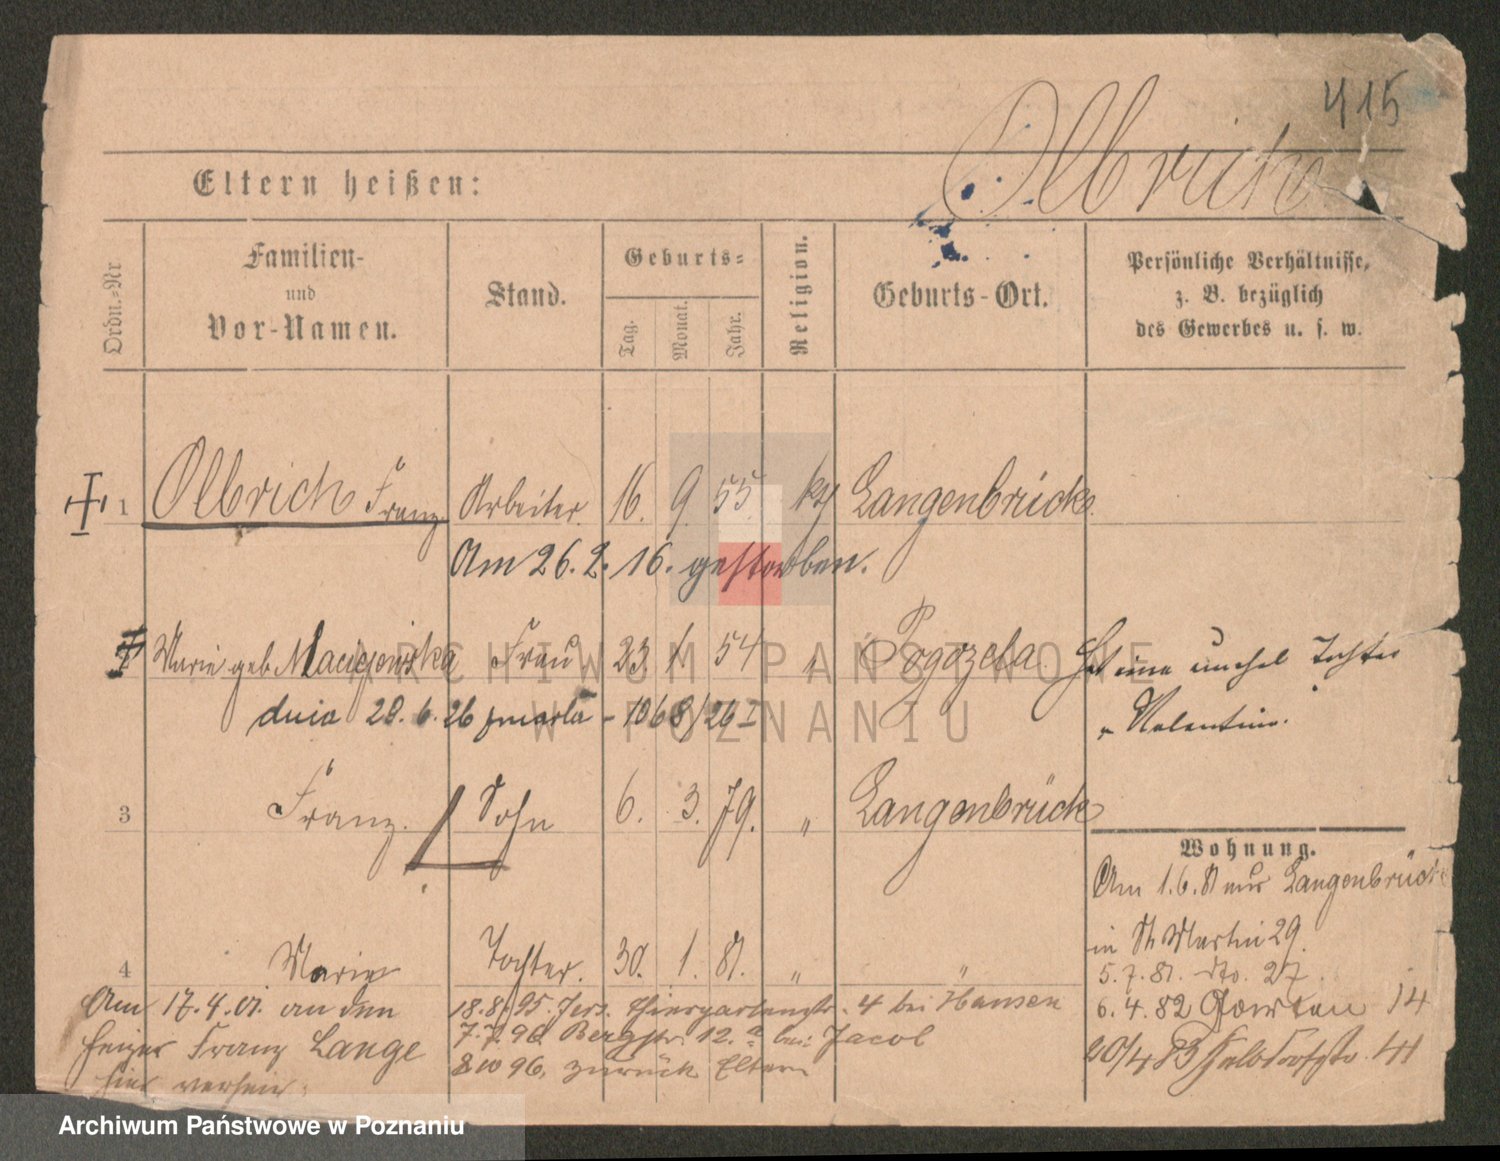 415
Olbrich
Eltern heißen:
Ordn.-Nr
Familien-
und
Vor-Namen.
Stand.
Geburts-
Tag.
Monat.
Jahr.
Religion.
Geburts-Ort.
Persönliche Verhältnisse,
z. B. bezüglich
des Gewerbes u. s. w.
1 Olbrich Franz. Arbeiter. 16. 9. 55. kth Langenbrück.
Am 26. 2. 16. gestorben.
2 Marie geb. Maciejewska Frau 23. 1. 54 " Pogozela. Hat eine unehel Tochter
dnia 28. 6. 26 zmarła - 1068/26 I
" Valentine.
3 Franz. Sohn 6. 3. 79. " Langenbrück
Wohnung.
Am 1. 6. 81 aus Langenbrück
in St. Martin 29.
4 Marie Tochter. 30. 1. 81. "
5. 7. 81. dto. 27.
Am 17. 4. 01. an den
18. 8. 95. Jers. Thiergartenstr. 4 bei Hansen
6. 4. 82 14
Heizer Franz Lange
7. 7. 96 Bergstr. 12.a bei Jacob
20/4 83 Halbdorfstr.
hier verheir.
8 10 96. zurück Eltern
ARCHIWUM PAŃSTWOWE
W POZNANIU
Archiwum Państwowe w Poznaniu